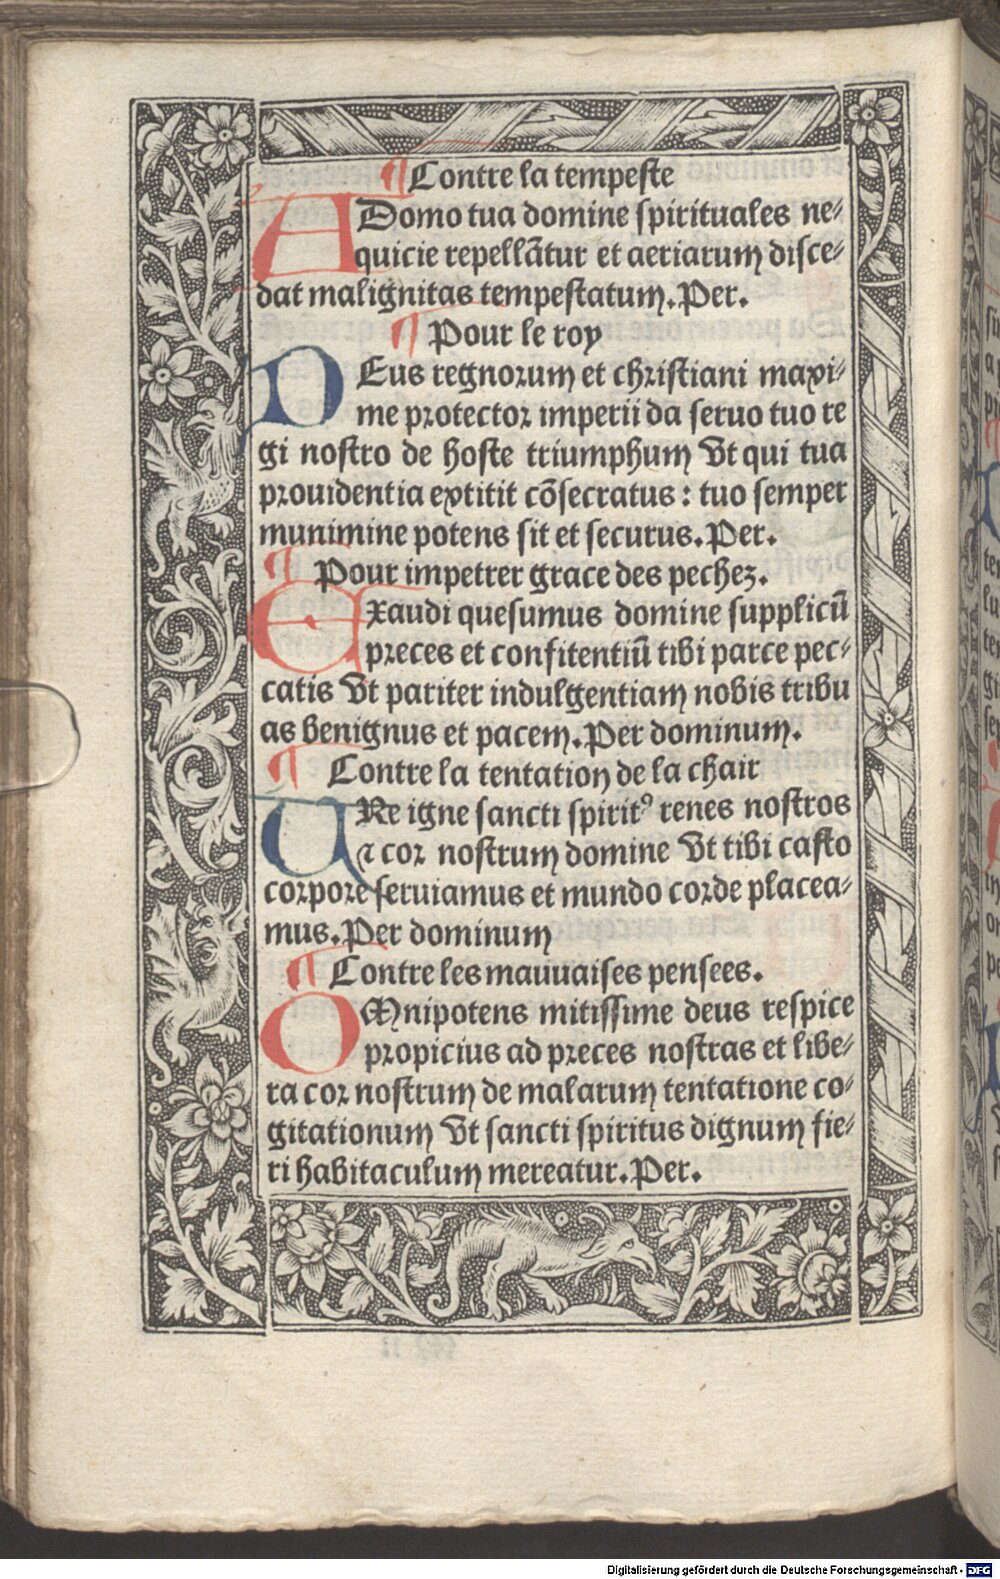 ¶Contre la tempeste
ADomo tua domine spirituales ne-
quicie repellãtur et aeriarum disce-
dat malignitas tempestatum. Per.
¶ Pour le roy
DEus regnorum et christiani maxi-
me protector imperii da seruo tuo re
gi nostro de hoste triumphum Ut qui tua
prouidentia extitit cõsecratus : tuo semper
munimine potens sit et securus. Per.
¶ Pour impetrer grace des pechez.
EXaudi quesumus domine supplicũ
preces et confitentiũ tibi parce pec-
catis Ut pariter indulgentiam nobis tribu
as benignus et pacem. Per dominum.
¶ Contre la tentation de la chair
URe igne sancti spiritꝰ renes nostros
⁊ cor nostrum domine Ut tibi casto
corpore seruiamus et mundo corde placea-
mus. Per dominum
¶ Contre les mauuaises pensees.
OMnipotens mitissime deus respice
propicius ad preces nostras et libe-
ra cor nostrum de malarum tentatione co-
gitationum Ut sancti spiritus dignum fie-
ri habitaculum mereatur. Per.
Digitalisierung gefördert durch die Deutsche Forschungsgemeinschaft - DFG